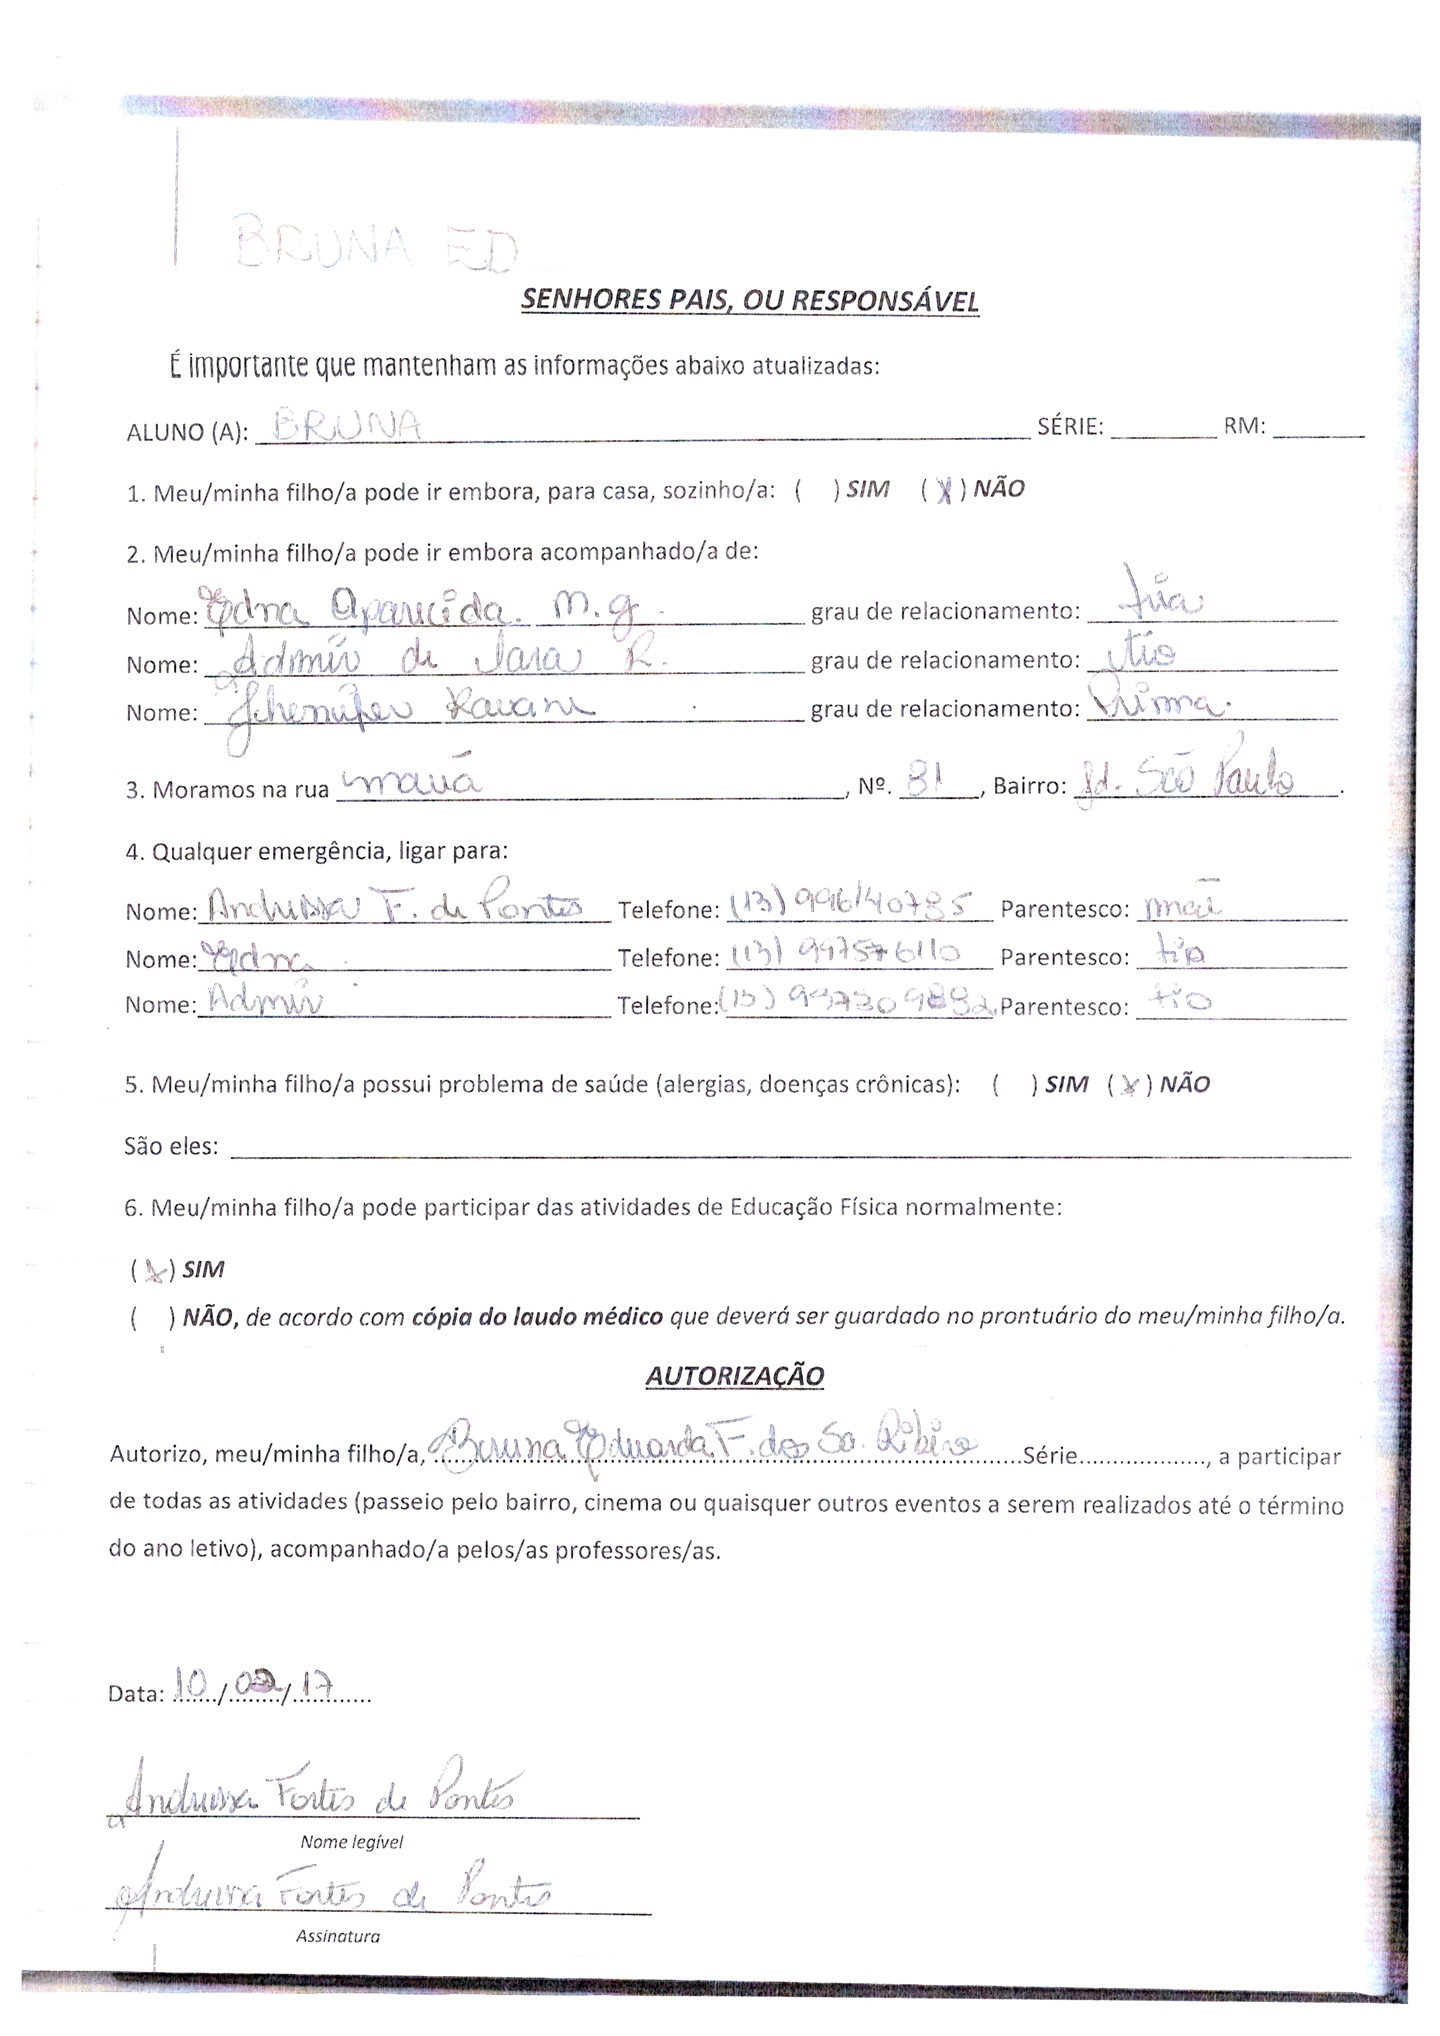 BRUNA ED
SENHORES PAIS, OU RESPONSÁVEL
É importante que mantenham as informações abaixo atualizadas:
ALUNO (A): BRUNA SÉRIE: RM:
1. Meu/minha filho/a pode ir embora, para casa, sozinho/a: ( ) SIM (X) NÃO
2. Meu/minha filho/a pode ir embora acompanhado/a de:
Nome: Edna Aparecida. M. G. grau de relacionamento: tia
Nome: Admir de Lara R. grau de relacionamento: tio
Nome: Jhenifer grau de relacionamento: Prima.
3. Moramos na rua mauá, Nº. 81, Bairro: Jd. São Paulo.
4. Qualquer emergência, ligar para:
Nome: Andressa F. de Pontes Telefone: (13) 996140785 Parentesco: mãe
Nome: Edna Telefone: (13) 997576110 Parentesco: tia
Nome: Admir Telefone: (13) Parentesco: tio
5. Meu/minha filho/a possui problema de saúde (alergias, doenças crônicas): ( ) SIM (X) NÃO
São eles:
6. Meu/minha filho/a pode participar das atividades de Educação Física normalmente:
(X) SIM
( ) NÃO, de acordo com cópia do laudo médico que deverá ser guardado no prontuário do meu/minha filho/a.
AUTORIZAÇÃO
Autorizo, meu/minha filho/a, Bruna Eduarda F. dos So. Ribeiro Série..................., a participar
de todas as atividades (passeio pelo bairro, cinema ou quaisquer outros eventos a serem realizados até o término
do ano letivo), acompanhado/a pelos/as professores/as.
Data: 10/02/17
Andressa Fortes de Pontes
Nome legível
Andressa Fortes de Pontes
Assinatura